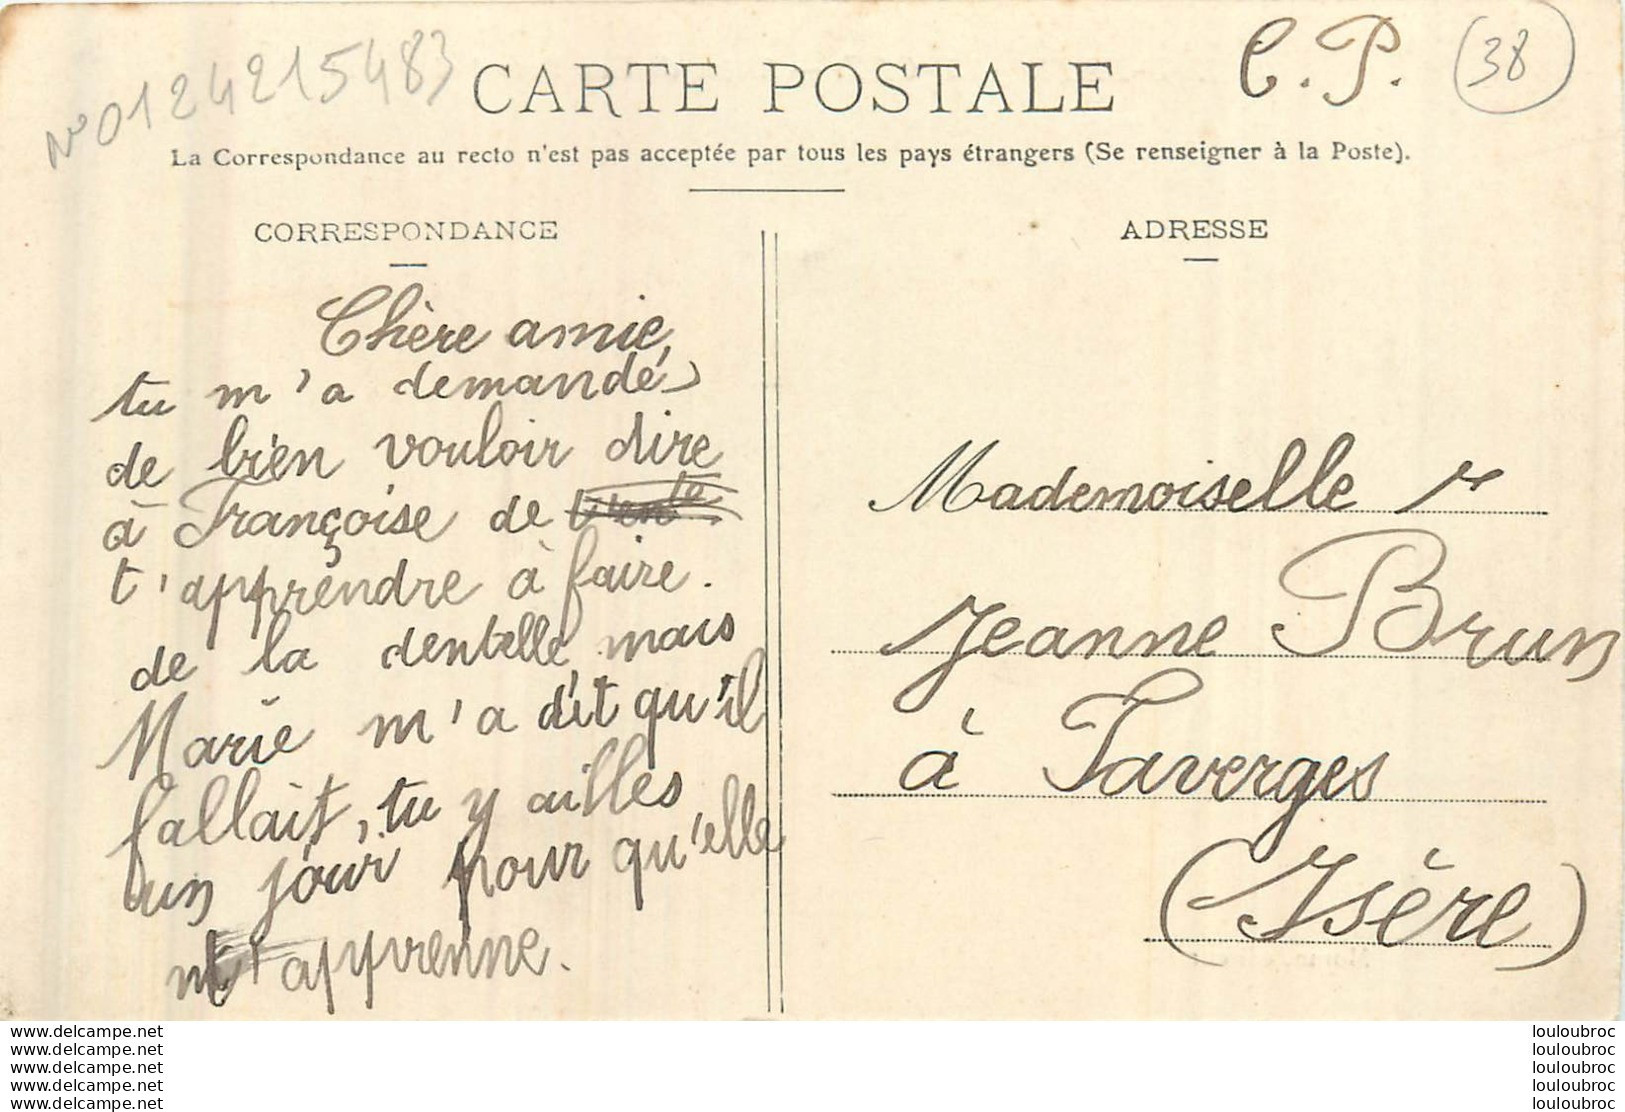 N° 0124215483
CARTE POSTALE
C. P.
38
La Correspondance au recto n'est pas acceptée par tous les pays étrangers (Se renseigner à la Poste).
CORRESPONDANCE
Chère amie,
tu m'a demandé
de bien vouloir dire
à Françoise de
t'apprendre à faire.
de la dentelle, mais
Marie m'a dit qu'il
fallait, tu y ailles
un jour pour qu'elle
t'apprenne.
ADRESSE
Mademoiselle
Jeanne Brun
à Taverges
(Isère)
www.delcampe.net
www.delcampe.net
www.delcampe.net
www.delcampe.net
www.delcampe.net
louloubroc
louloubroc
louloubroc
louloubroc
louloubroc